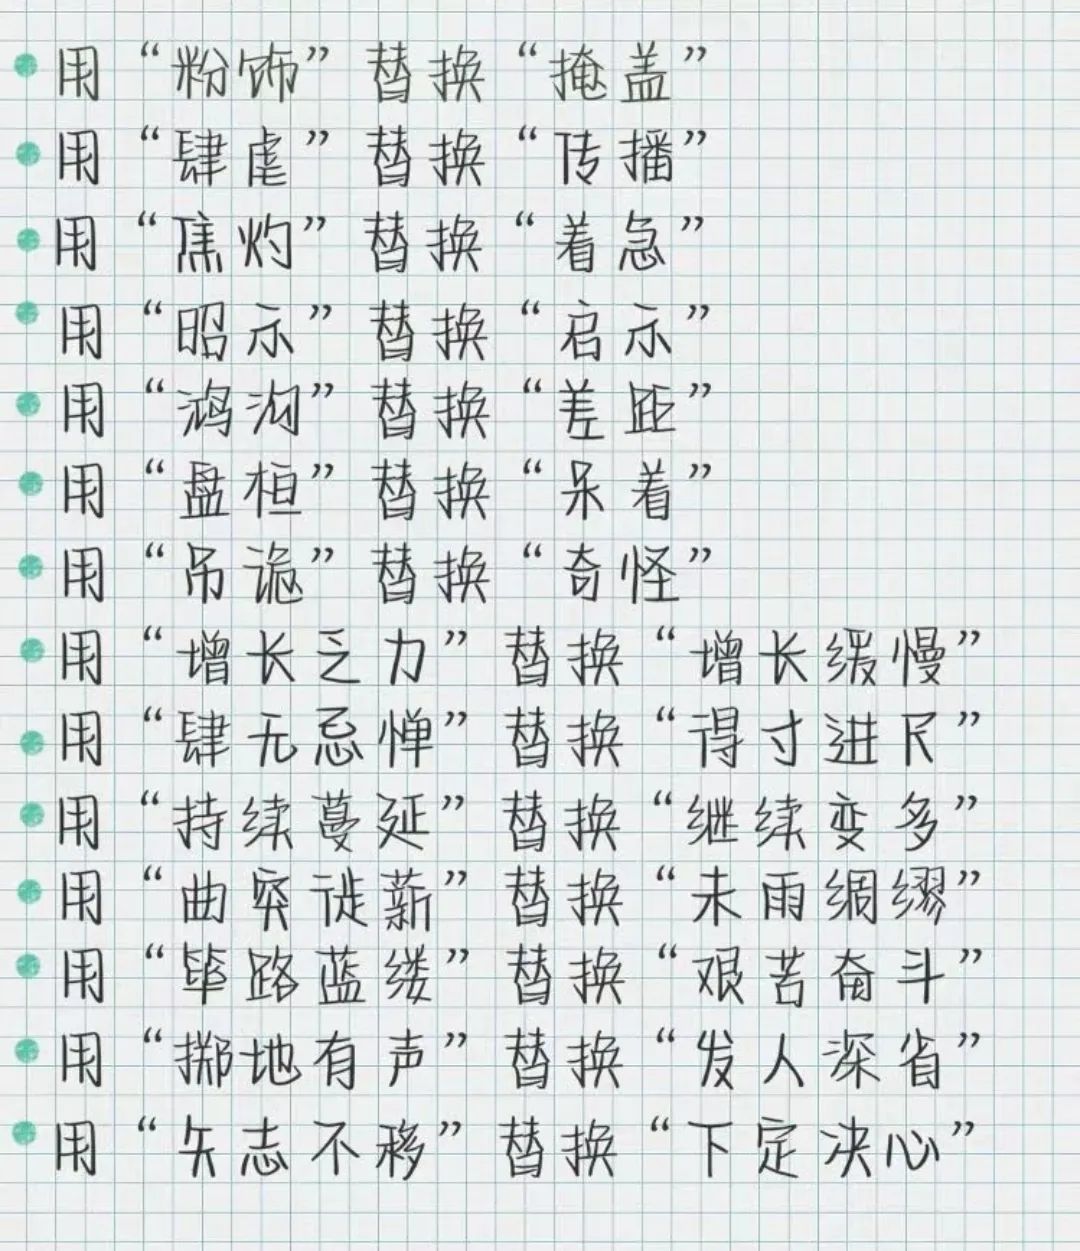 用“粉饰”替换“掩盖”
用“肆虐”替换“传播”
用“焦灼”替换“着急”
用“昭示”替换“启示”
用“鸿沟”替换“差距”
用“盘桓”替换“呆着”
用“吊诡”替换“奇怪”
用“增长乏力”替换“增长缓慢”
用“肆无忌惮”替换“得寸进尺”
用“持续蔓延”替换“继续变多”
用“曲突徙薪”替换“未雨绸缪”
用“筚路蓝缕”替换“艰苦奋斗”
用“掷地有声”替换“发人深省”
用“矢志不移”替换“下定决心”